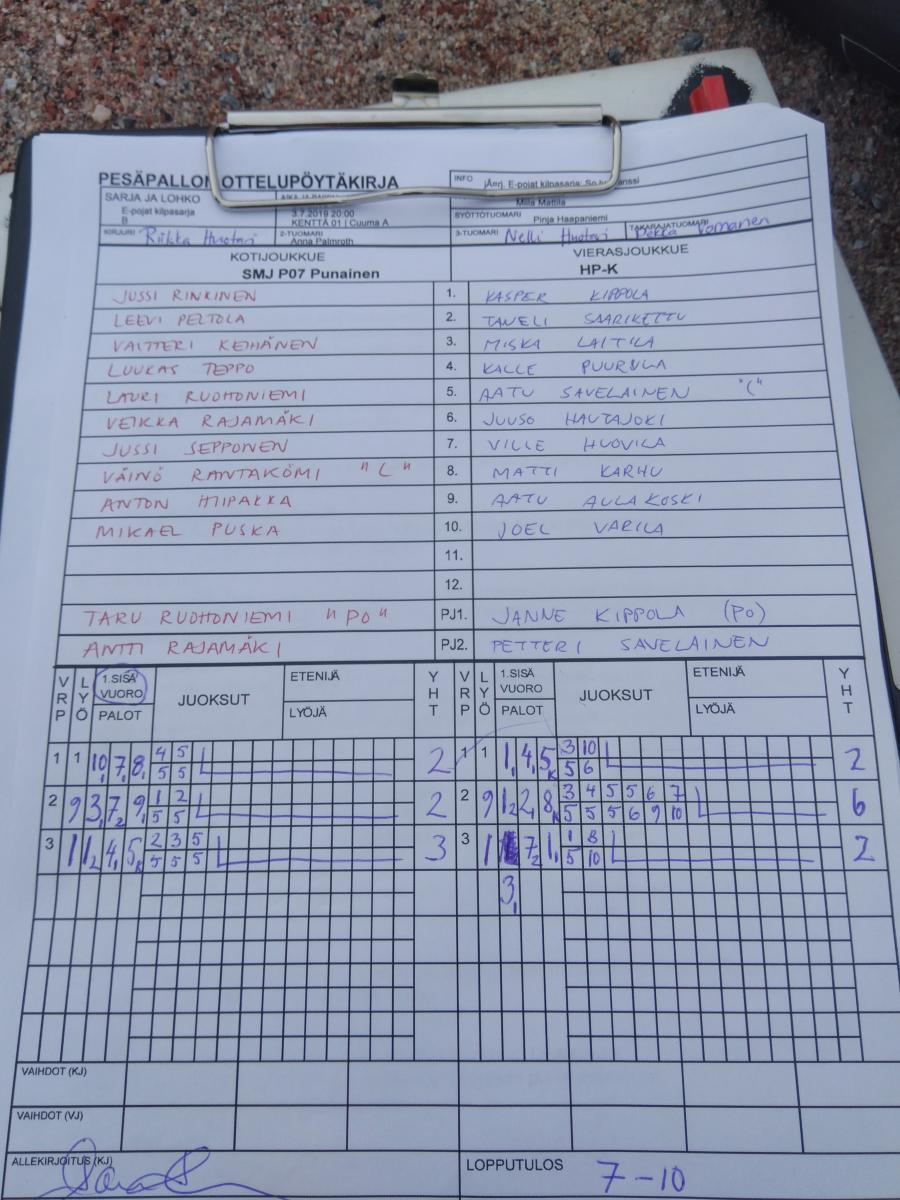 PESÄPALLON OTTELUPÖYTÄKIRJA
INFO
SARJA JA LOHKO
E-pojat kilpasarja
B
3.7.2019 20:00
KENTTÄ 01 | Cuuma A
Milla Mattila
SYÖTTÖTUOMARI
Pinja Haapaniemi
KIRJURI Riikka Huotari
2-TUOMARI
Anna Palmroth
3-TUOMARI Nelli Huotari
TAKARAJATUOMARI Pekka
KOTIJOUKKUE
SMJ P07 Punainen
VIERASJOUKKUE
HP-K
JUSSI RINKINEN 1. KASPER KIPPOLA
LEEVI PELTOLA 2. TAVELI SAARIKETTU
VALTTERI KEIHÄNEN 3. MISKA LAITILA
LUUKAS TEPPO 4. KALLE PUURULA
LAURI RUOHONIEMI 5. AATU SAVELAINEN "C"
VEIKKA RAJAMÄKI 6. JUUSO HAUTAJOKI
JUSSI SEPPONEN 7. VILLE HUOVILA
VÄINÖ RANTAKÖMI "C" 8. MATTI KARHU
ANTON HIIPAKKA 9. AATU AULAKOSKI
MIKAEL PUSKA 10. JOEL VARILA
11.
12.
TARU RUOHONIEMI "PO" PJ1. JANNE KIPPOLA (PO)
ANTTI RAJAMÄKI PJ2. PETTERI SAVELAINEN
VRP LYÖ 1.SISÄ VUORO PALOT JUOKSUT ETENIJÄ LYÖJÄ YHT VRP LYÖ 1.SISÄ VUORO PALOT JUOKSUT ETENIJÄ LYÖJÄ YHT
1 1 10, 7, 8, 4 5 2 1 1 1, 4, 5K 3 10 2
5 5 5 6
2 9 3, 7 2 9, 1 2 2 2 9 1 2 2, 8K 3 4 5 5 6 7 6
5 5 5 5 5 6 9 10
3 1 1 2 4, 5K 2 3 5 3 3 1 7 2 1, 1 8 2
5 5 5 5 10
3,
VAIHDOT (KJ)
VAIHDOT (VJ)
ALLEKIRJOITUS (KJ)
LOPPUTULOS 7-10